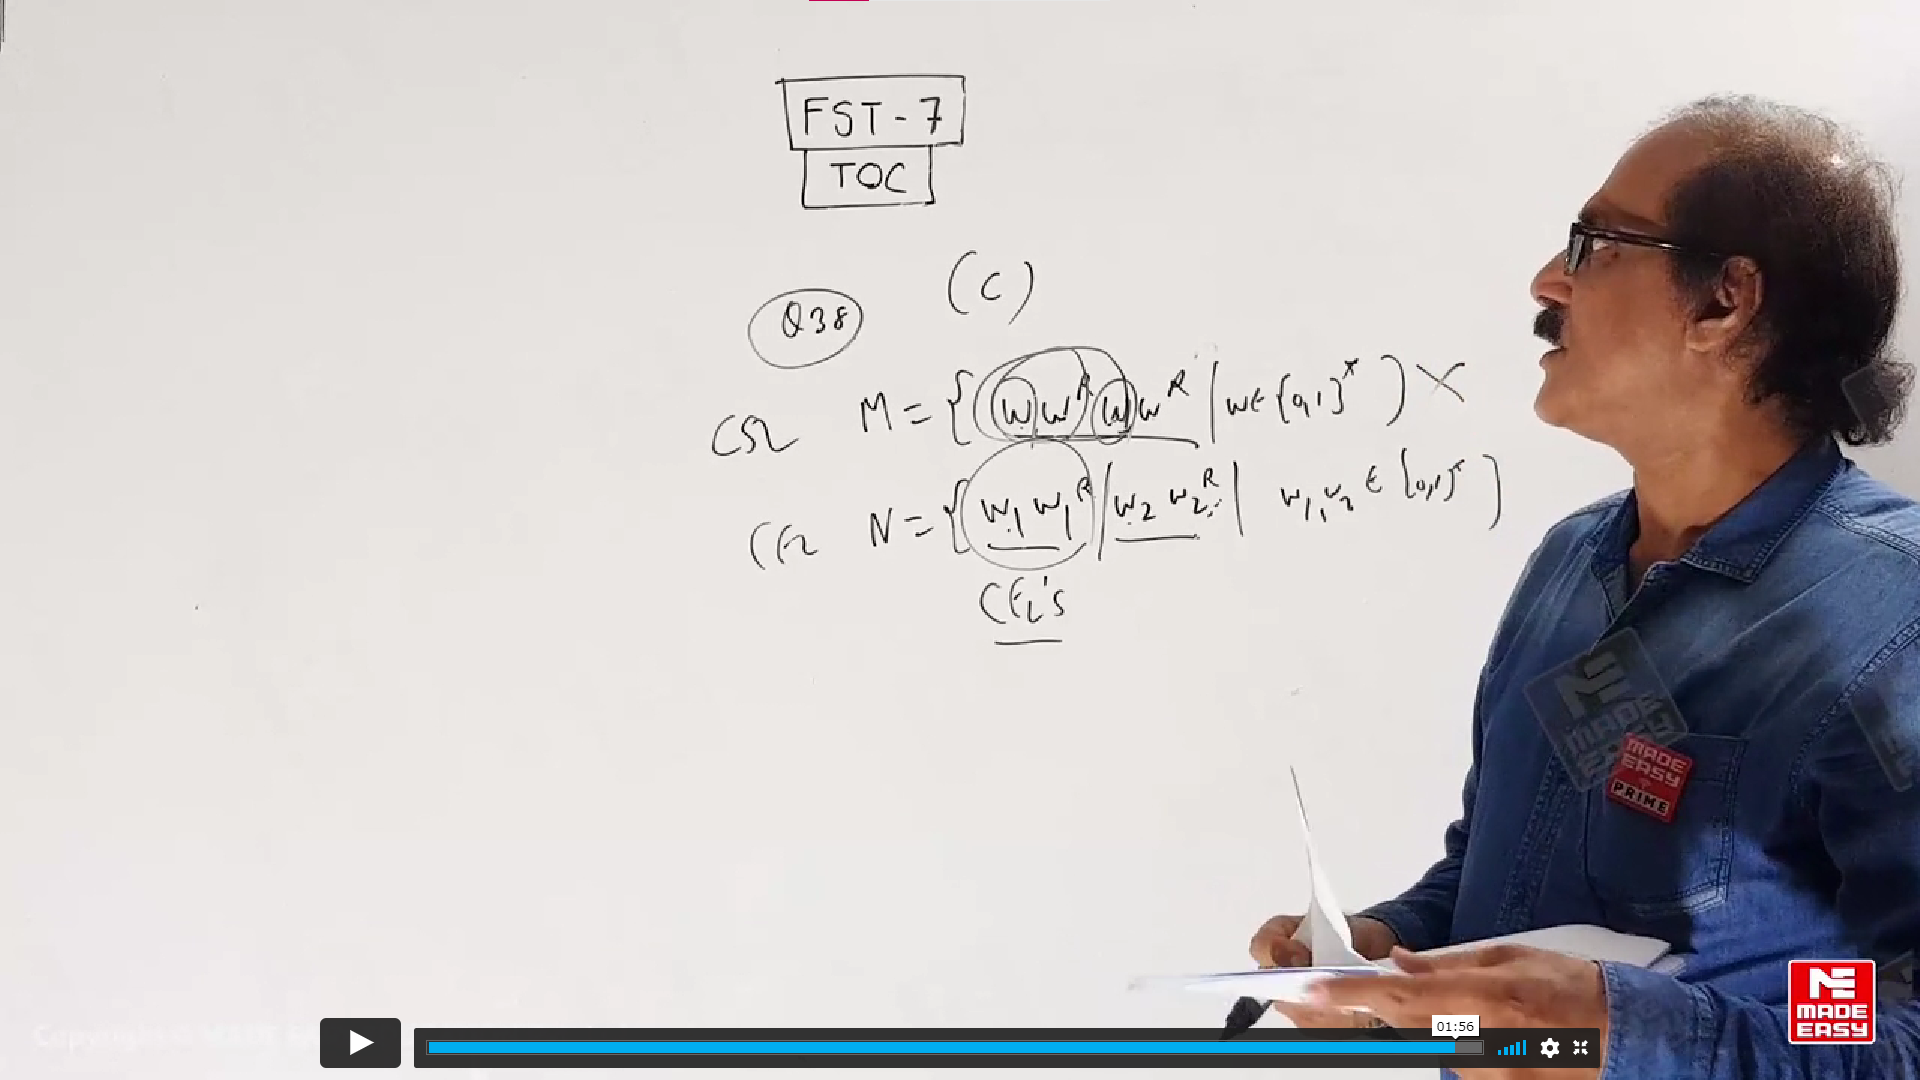 FST-7
TOC
(C)
Q38
CSL M = { w wᴿ w wᴿ | w ∈ {0,1}* } X
CFL N = { w₁ w₁ᴿ | w₂ w₂ᴿ | w₁, w₂ ∈ {0,1}* }
CFL's
MADE
EASY
PRIME
01:56
MADE
EASY